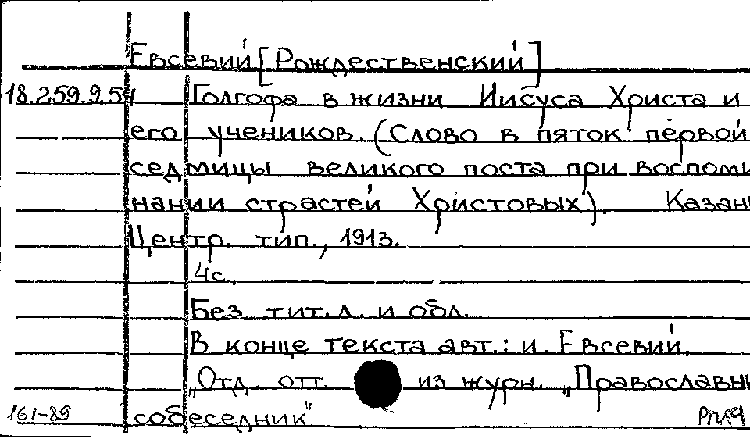 Евсевий [Рождественский]
18.259.9.54 Голгофа в жизни Иисуса Христа и
его учеников. (Слово в пяток первой
седмицы великого поста при воспоми
нании страстей Христовых). Казан
Центр. тип., 1913.
4с.
Без тит.л. и обл.
В конце текста авт.: и. Евсевий.
„Отд. отт. из журн. „Православн
собеседник"
161-89